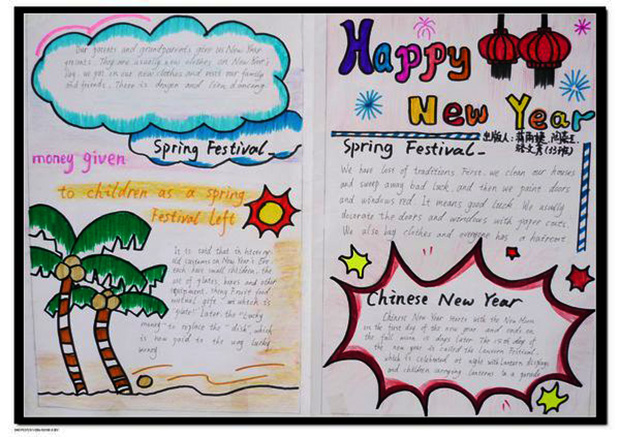 Our parents and grandparents give us New Year
presents. They are usually new clothes. On New Year's
Day, we put on our new clothes and visit our family
and friends. There is dragon and lion dancing.
Spring Festival
money given
to children as a spring
Festival left
It is said that in
old customs on New Year's Eve
each have small children, the
use of plates, boxes and other
Spring Fruit food
mutual gift
"plate". Later, the "Lucky
money" to replace the "dish", which
is now paid in the way lucky
money
Happy
New Year
出版人:
Spring Festival
We have lots of traditions. First, we clean our houses
and sweep away bad luck, and then we paint doors
and windows red. It means good luck. We usually
decorate the doors and windows with paper cuts.
We also buy clothes and everyone has a haircut.
Chinese New Year
Chinese New Year starts with the New Moon
on the first day of the new year and ends on
the full moon 15 days later. The 15th day of
the new year is called the Lantern Festival,
which is celebrated at night with lantern displays
and children carrying lanterns in a parade